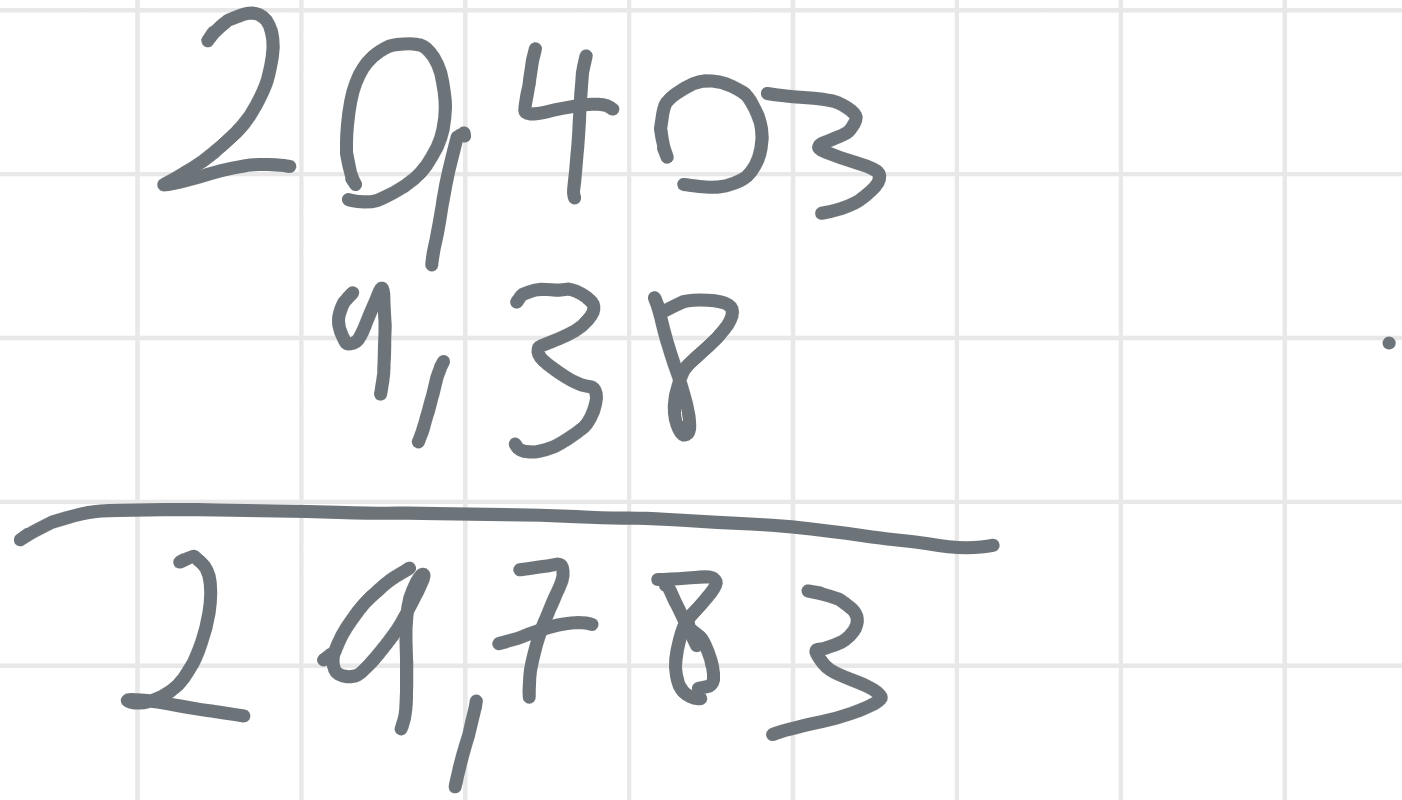 20,403
9,38
29,783